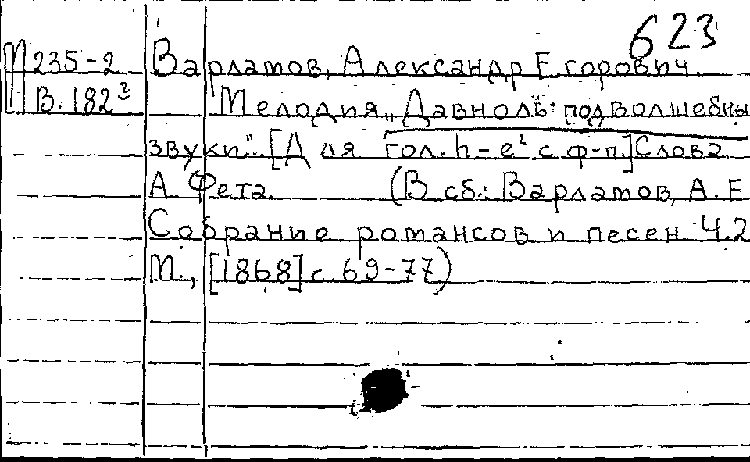 623
М 235-2 Варламов, Александр Егорович
В. 182³ Мелодия „Давноль: под волшебны
звуки". [Для гол. h-e² с ф-п.] Слова
А. Фета. (В сб.: Варламов, А. Е
Собрание романсов и песен Ч. 2
М., [1868] с. 69-77)